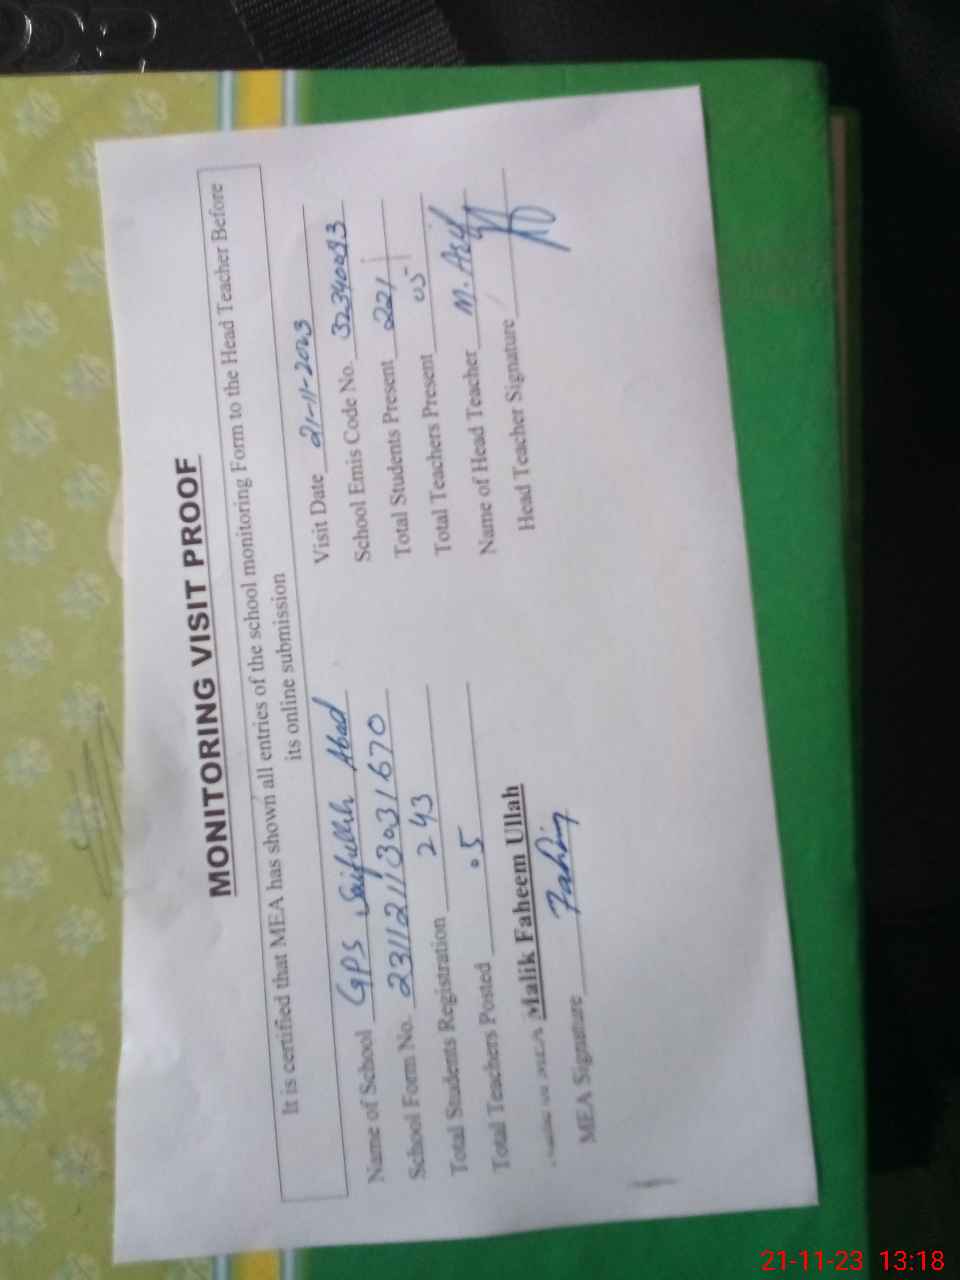 MONITORING VISIT PROOF
It is certified that MEA has shown all entries of the school monitoring Form to the Head Teacher Before
its online submission
Name of School GPS Saifullah Abad
School Form No. 231121103031670
Total Students Registration 243
Total Teachers Posted 05
MEA Malik Faheem Ullah
MEA Signature Fahim
Visit Date 21-11-2023
School Emis Code No. 32340093
Total Students Present 221
Total Teachers Present 05
Name of Head Teacher M. Asif
Head Teacher Signature
21-11-23 13:18